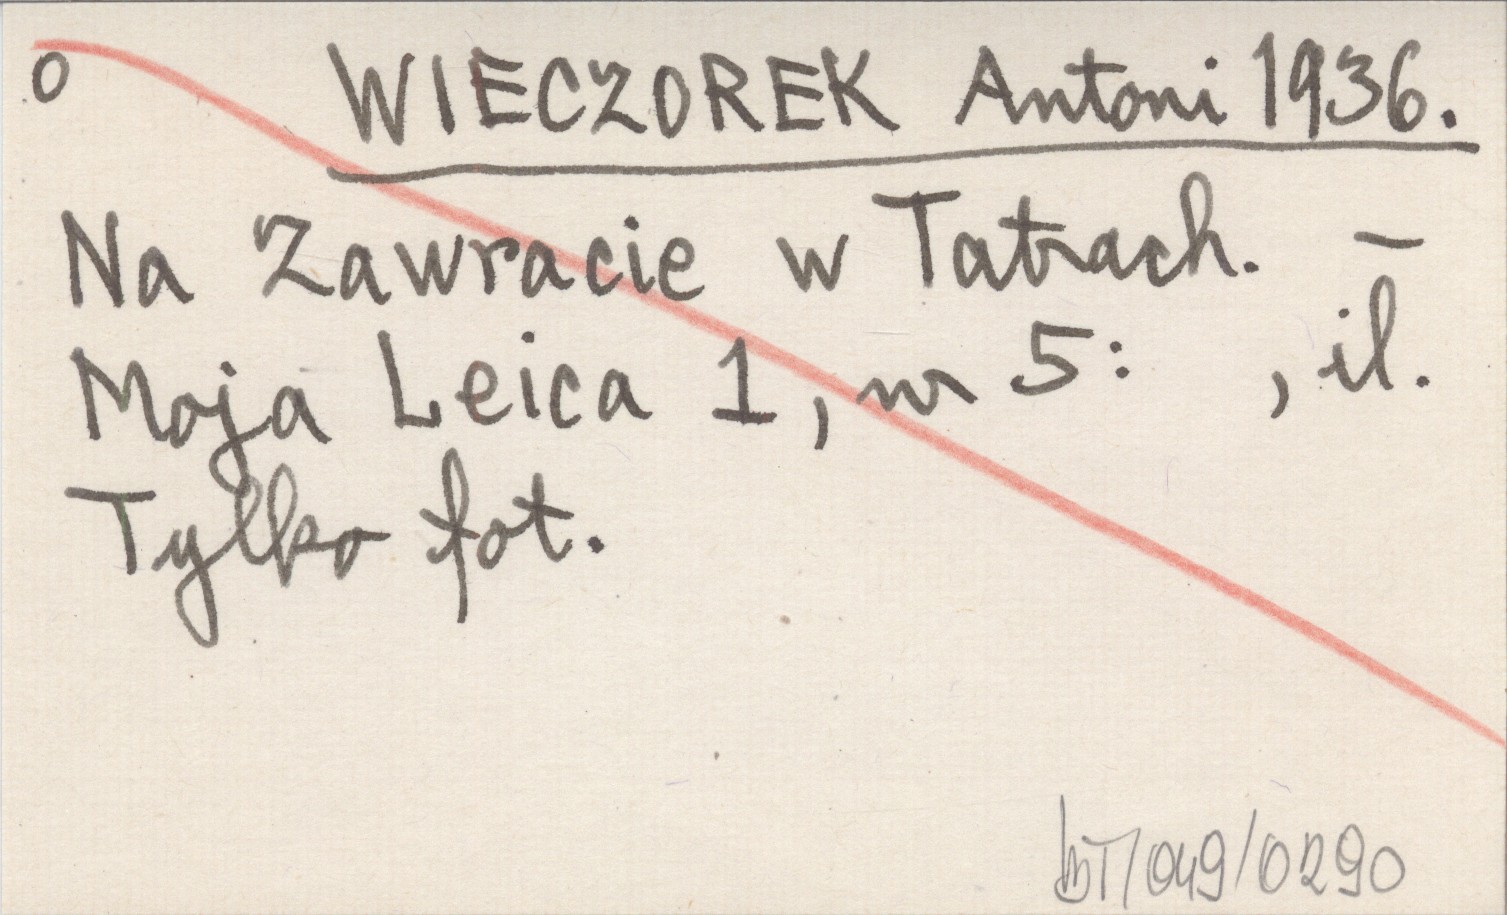 o WIECZOREK Antoni 1936.
Na Zawracie w Tatrach. –
Moja Leica 1, nr 5: , il.
Tylko fot.
bT/049/0290